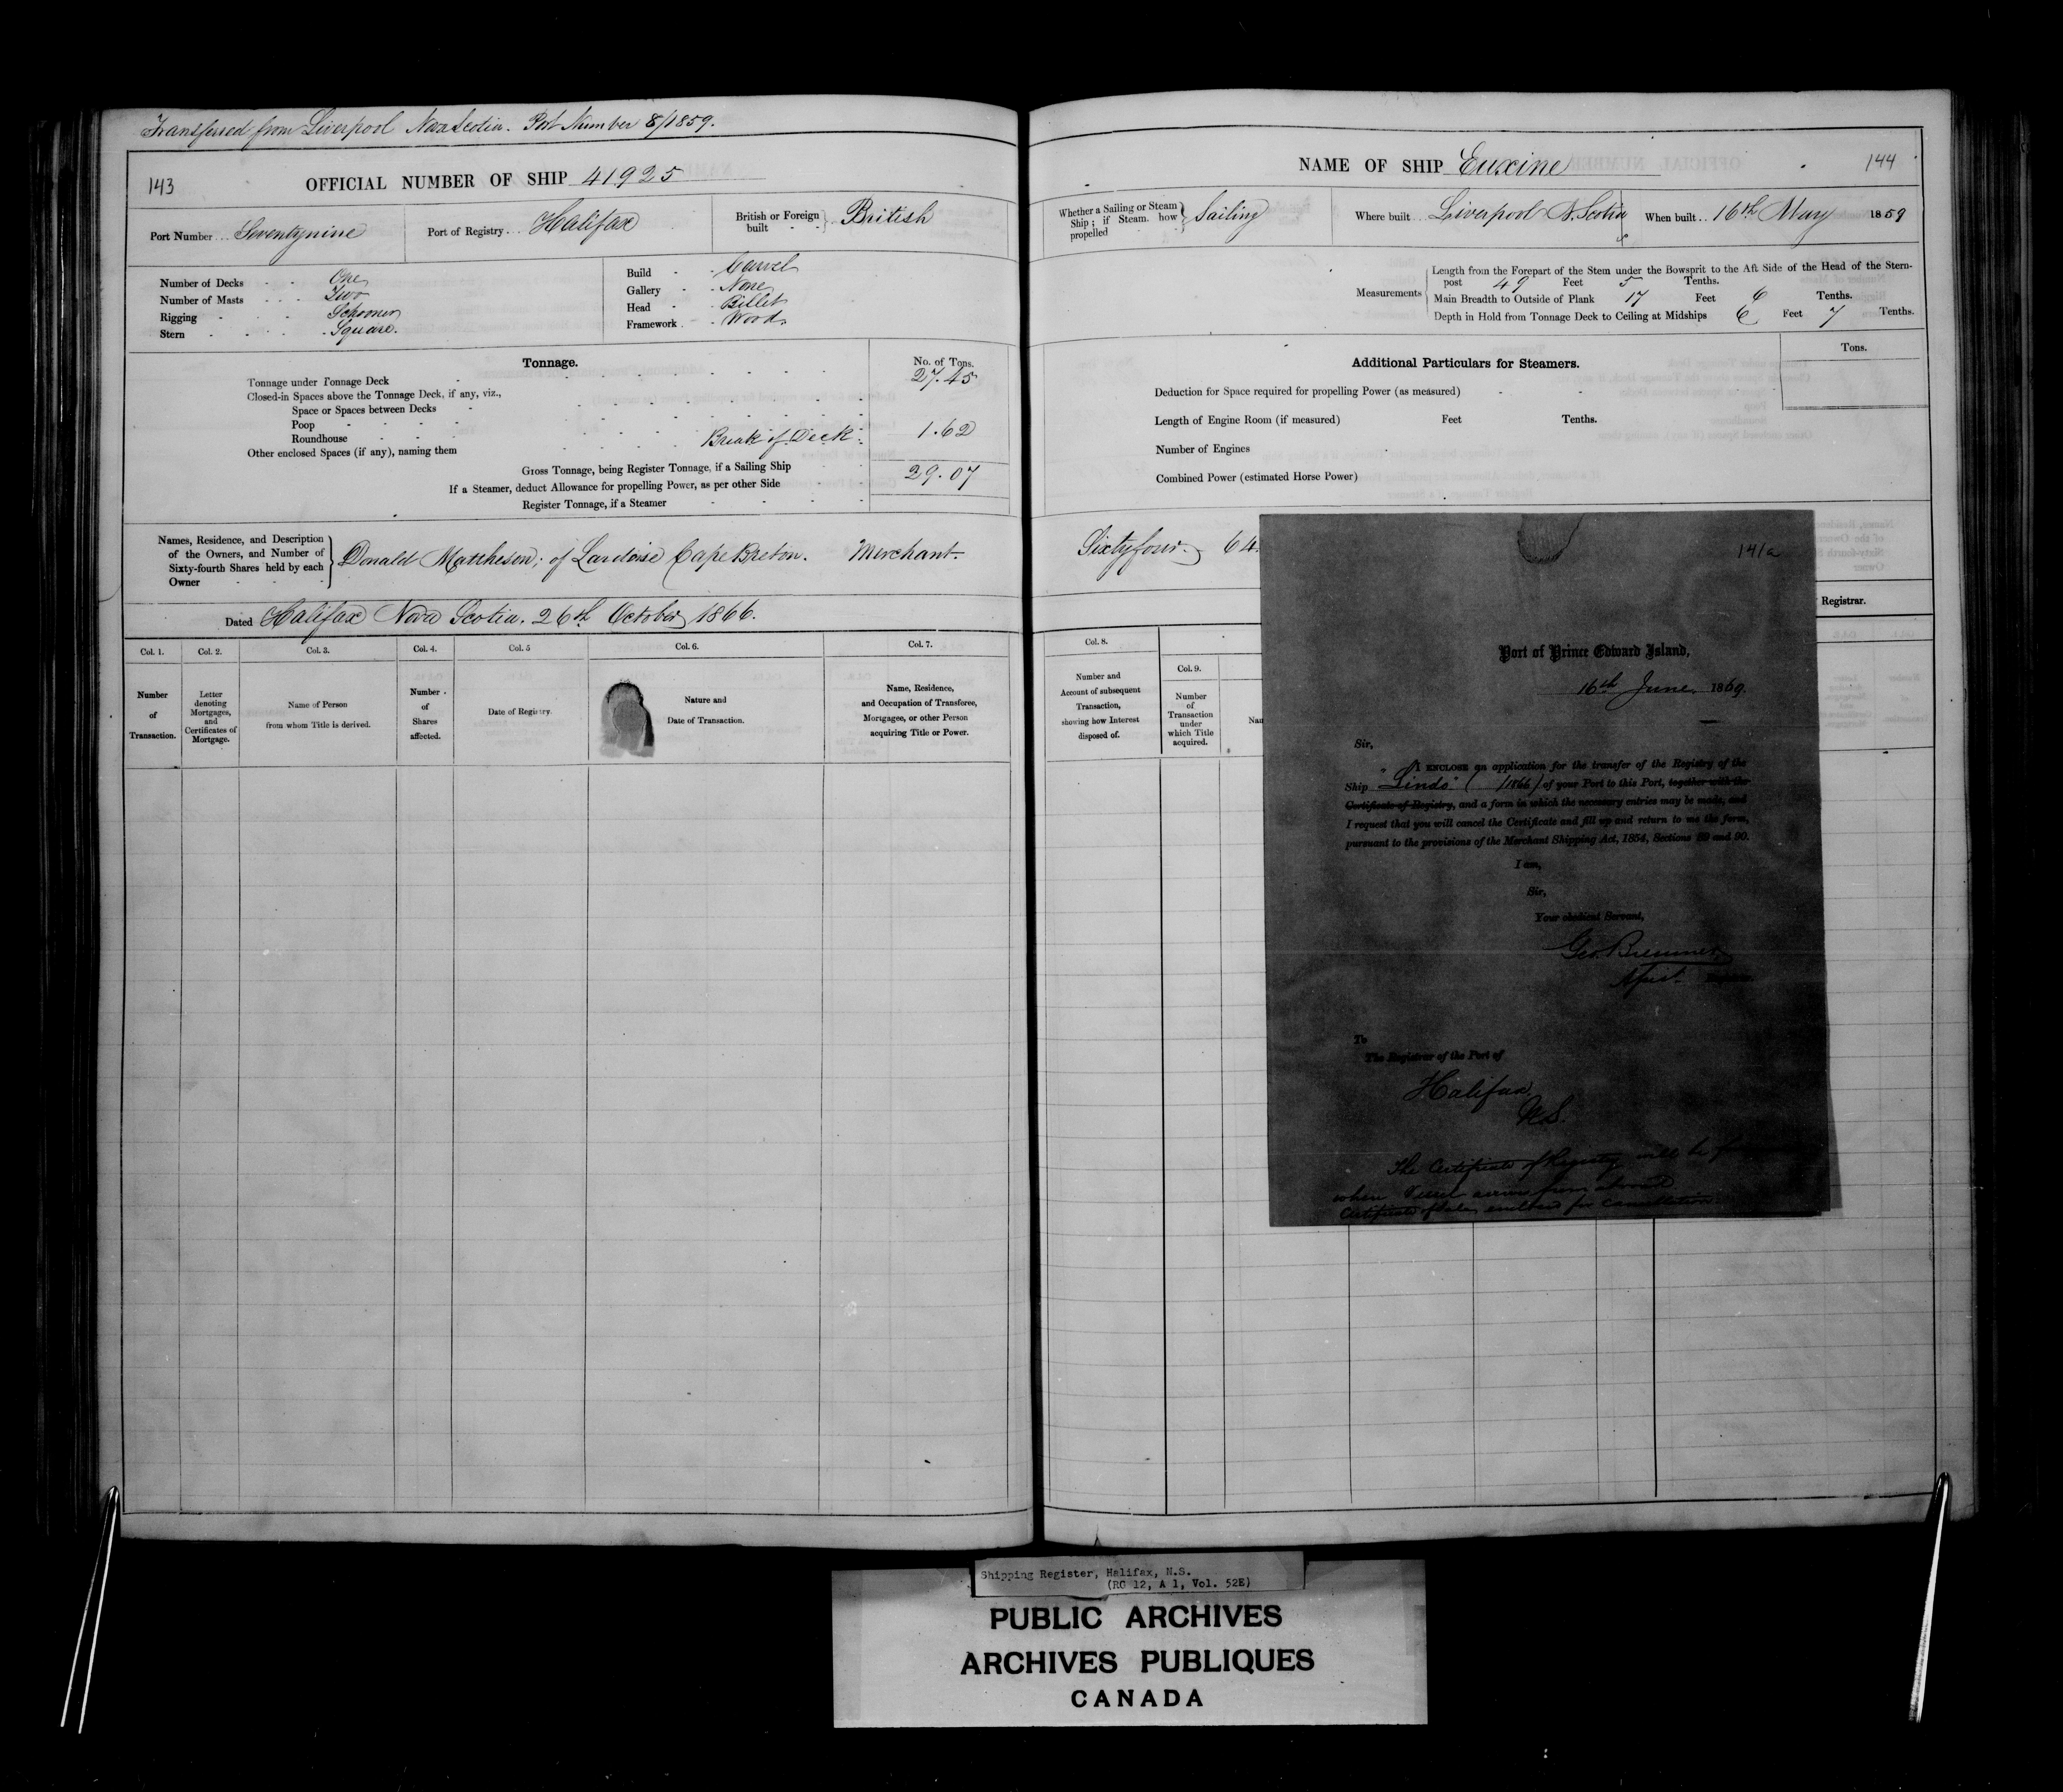 Transferred from Liverpool Nova Scotia. Port Number 8/1859.
143
OFFICIAL NUMBER OF SHIP 41925
Port Number Seventynine
Port of Registry Halifax
British or Foreign built British
Number of Decks One
Number of Masts Two
Rigging Schooner
Stern Square.
Build Carvel
Gallery None
Head Billet
Framework Wood
Tonnage.
No. of Tons.
Tonnage under Tonnage Deck 27.45
Closed-in Spaces above the Tonnage Deck, if any, viz.,
Space or Spaces between Decks
Poop
Roundhouse
Other enclosed Spaces (if any), naming them Break of Deck 1.62
Gross Tonnage, being Register Tonnage, if a Sailing Ship 29.07
If a Steamer, deduct Allowance for propelling Power, as per other Side
Register Tonnage, if a Steamer
Names, Residence, and Description
of the Owners, and Number of
Sixty-fourth Shares held by each
Owner
Donald Mattheson; of Lardoise Cape Breton. Merchant.
Dated Halifax Nova Scotia. 26th October 1866.
Col. 1. Number of Transaction.
Col. 2. Letter denoting Mortgages, and Certificates of Mortgage.
Col. 3. Name of Person from whom Title is derived.
Col. 4. Number of Shares affected.
Col. 5 Date of Registry.
Col. 6. Nature and Date of Transaction.
Col. 7. Name, Residence, and Occupation of Transferee, Mortgagee, or other Person acquiring Title or Power.
NAME OF SHIP Euxine
144
Whether a Sailing or Steam Ship; if Steam, how propelled Sailing
Where built Liverpool N. Scotia
When built 16th May 1859
Measurements
Length from the Forepart of the Stem under the Bowsprit to the Aft Side of the Head of the Stern-
post 49 Feet 5 Tenths.
Main Breadth to Outside of Plank 17 Feet 6 Tenths.
Depth in Hold from Tonnage Deck to Ceiling at Midships 6 Feet 7 Tenths.
Additional Particulars for Steamers.
Tons.
Deduction for Space required for propelling Power (as measured)
Length of Engine Room (if measured) Feet Tenths.
Number of Engines
Combined Power (estimated Horse Power)
Sixtyfour. 64.
Registrar.
Col. 8. Number and Account of subsequent Transaction, showing how Interest disposed of.
Col. 9. Number of Transaction under which Title acquired.
141a
Port of Prince Edward Island,
16th June 1869.
Sir,
I ENCLOSE an application for the transfer of the Registry of the
Ship "Linds" ( /1866) of your Port to this Port, together with the
Certificate of Registry, and a form in which the necessary entries may be made, and
I request that you will cancel the Certificate and fill up and return to me the form,
pursuant to the provisions of the Merchant Shipping Act, 1854, Sections 89 and 90.
I am,
Sir,
Your obedient Servant,
Geo. Bremner
To
The Registrar of the Port of
Halifax
N.S.
The Certificate of Registry will be
when Vessel arrives from abroad
Certificate of Sale enclosed for Cancellation
Shipping Register, Halifax, N.S.
(RG 12, A 1, Vol. 52E)
PUBLIC ARCHIVES
ARCHIVES PUBLIQUES
CANADA